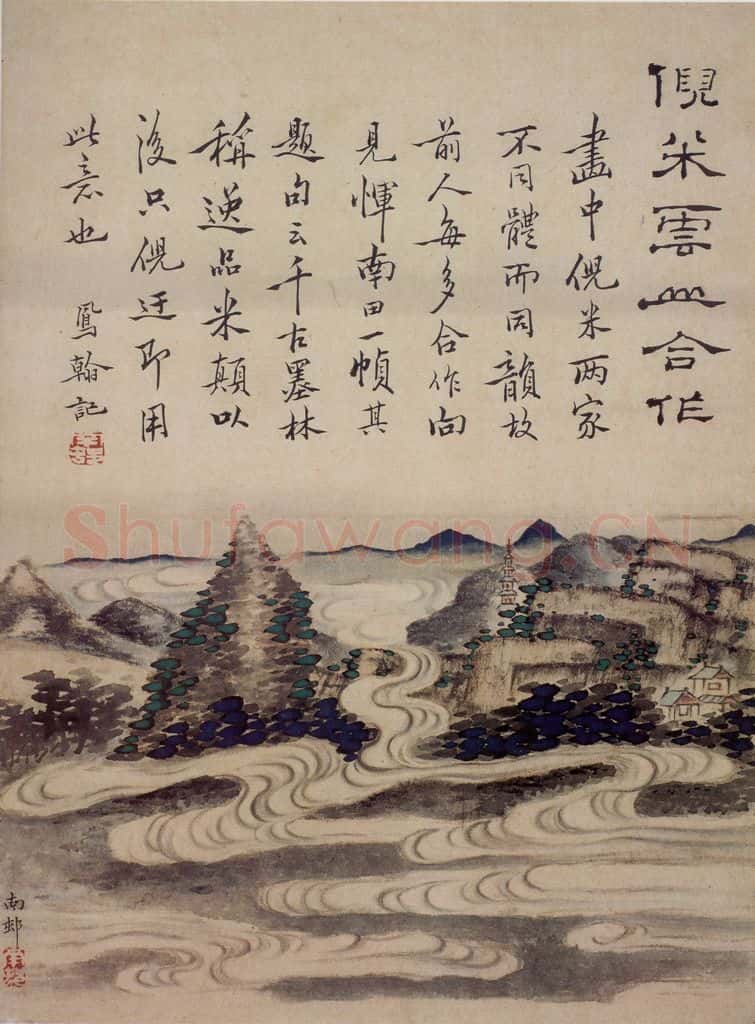 倪米雲山合作
畫中倪米两家
不同體而同韻故
前人每多合作向
見惲南田一幀其
題句云千古墨林
稱逸品米顛以
後只倪迂即用
此意也
鳳翰記
南邨
Shufawang.CN